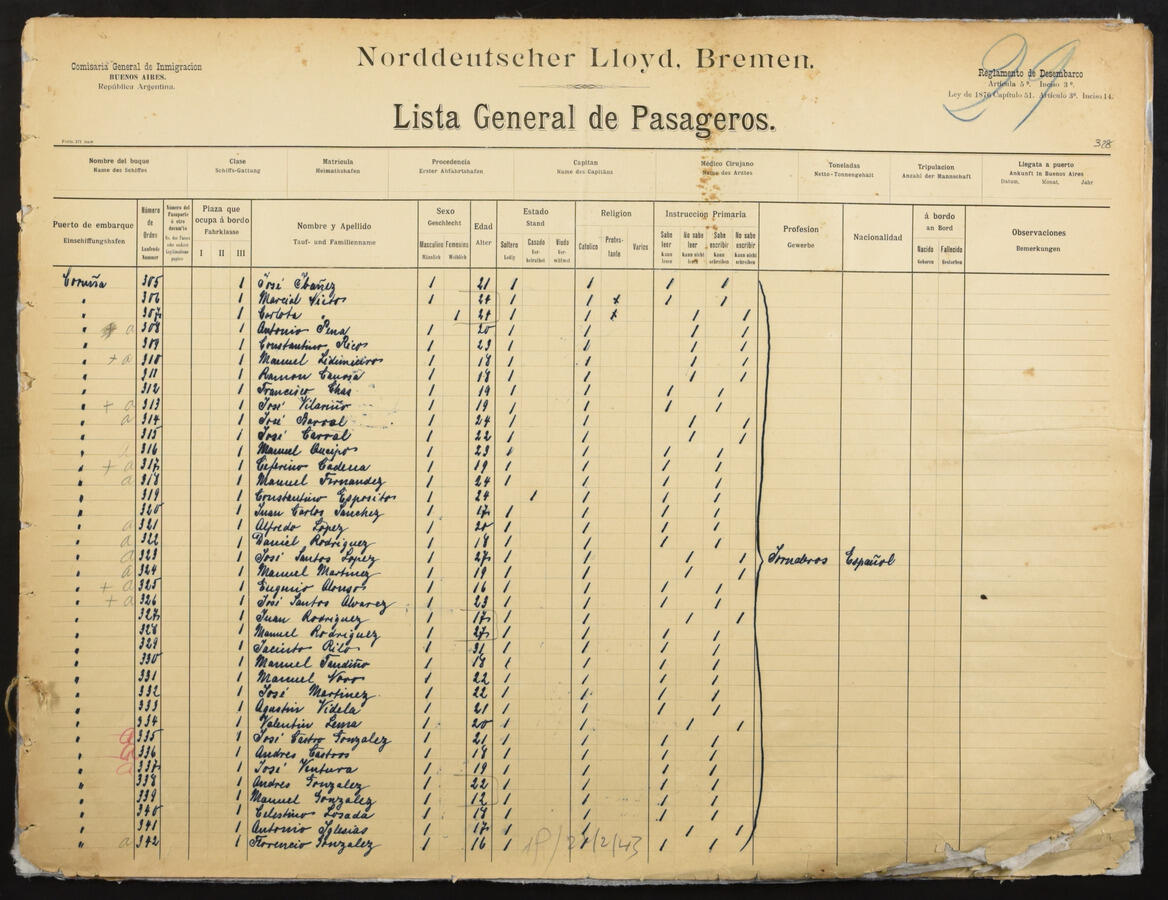 Norddeutscher Lloyd, Bremen.
Comisaria General de Inmigracion
BUENOS AIRES.
República Argentina.
29
Reglamento de Desembarco
Artícula 5º. Inciso 3º.
Ley de 1876 Capítulo 51. Artículo 3º. Inciso 14.
Lista General de Pasageros.
328
Nombre del buque Clase Matricula Procedencia Capitan Médico Cirujano Toneladas Tripulacion Llegata a puerto
Name des Schiffes Schiffs-Gattung Heimathshafen Erster Abfahrtshafen Name des Capitäns Name des Arztes Netto-Tonnengehalt Anzahl der Mannschaft Ankunft in Buenos Aires
Datum, Monat, Jahr
Puerto de embarque Número de Orden Plaza que ocupa á bordo Nombre y Apellido Sexo Edad Estado Religion Instruccion Primaria Profesion Nacionalidad á bordo Observaciones
Einschiffungshafen Laufende Nummer Fahrklasse Tauf- und Familienname Geschlecht Alter Stand Gewerbe an Bord Bemerkungen
I II III Masculino Femenino Soltero Casado Viudo Catolico Protestante Varios Sabe leer No sabe leer Sabe escribir No sabe escribir Nacido Fallecido
Männlich Weiblich Ledig Verheirathet Verwittwet kann lesen kann nicht lesen kann schreiben kann nicht schreiben Geboren Gestorben
Coruña 305 1 José Ibañez 1 21 1 1 1 1
" 306 1 Marcial 1 24 1 1 x 1 1
" 307 1 Carlota " 1 24 1 1 x 1 1
" a 308 1 Antonio Pena 1 20 1 1 1 1
" 309 1 Constantino Ricos 1 23 1 1 1 1
" + a 310 1 Manuel 1 18 1 1 1 1
" 311 1 Ramon 1 18 1 1 1 1
" 312 1 Francisco Chas 1 19 1 1 1 1
" + a 313 1 José Vilariño 1 19 1 1 1 1
" a 314 1 José Barral 1 24 1 1 1 1
" 315 1 José Carral 1 22 1 1 1 1
" 316 1 Manuel Queipos 1 23 1 1 1 1
" + a 317 1 Ceferino Cadena 1 19 1 1 1 1
" a 318 1 Manuel Fernandez 1 24 1 1 1 1
" 319 1 Constantino Espositos 1 24 1 1 1 1
" 320 1 Juan Carlos Sanchez 1 17 1 1 1 1
" a 321 1 Alfredo Lopez 1 20 1 1 1 1
" a 322 1 Daniel Rodriguez 1 18 1 1 1 1
" a 323 1 José Santos Lopez 1 27 1 1 1 1 Jornaleros Español
" a 324 1 Manuel Martinez 1 19 1 1 1 1
" + a 325 1 Eugenio Alonso 1 16 1 1 1 1
" + a 326 1 José Santos Alvarez 1 23 1 1 1 1
" 327 1 Juan Rodriguez 1 17 1 1 1 1
" 328 1 Manuel Rodriguez 1 27 1 1 1 1
" 329 1 Jacinto Rilo 1 31 1 1 1 1
" 330 1 Manuel Tandiño 1 18 1 1 1 1
" 331 1 Manuel Novo 1 22 1 1 1 1
" 332 1 José Martinez 1 22 1 1 1 1
" 333 1 Agustin Videla 1 21 1 1 1 1
" 334 1 Valentin Lema 1 20 1 1 1 1
" 335 1 José Castro Gonzalez 1 21 1 1 1 1
" 336 1 Andres Castros 1 18 1 1 1 1
" 337 1 José Ventura 1 19 1 1 1 1
" 338 1 Andres Gonzalez 1 22 1 1 1 1
" 339 1 Manuel Gonzalez 1 12 1 1 1 1
" 340 1 Celestino Losada 1 18 1 1 1 1
" 341 1 Antonio Iglesias 1 17 1 1 1 1
" a 342 1 Florencio Gonzalez 1 16 1 1 1 1